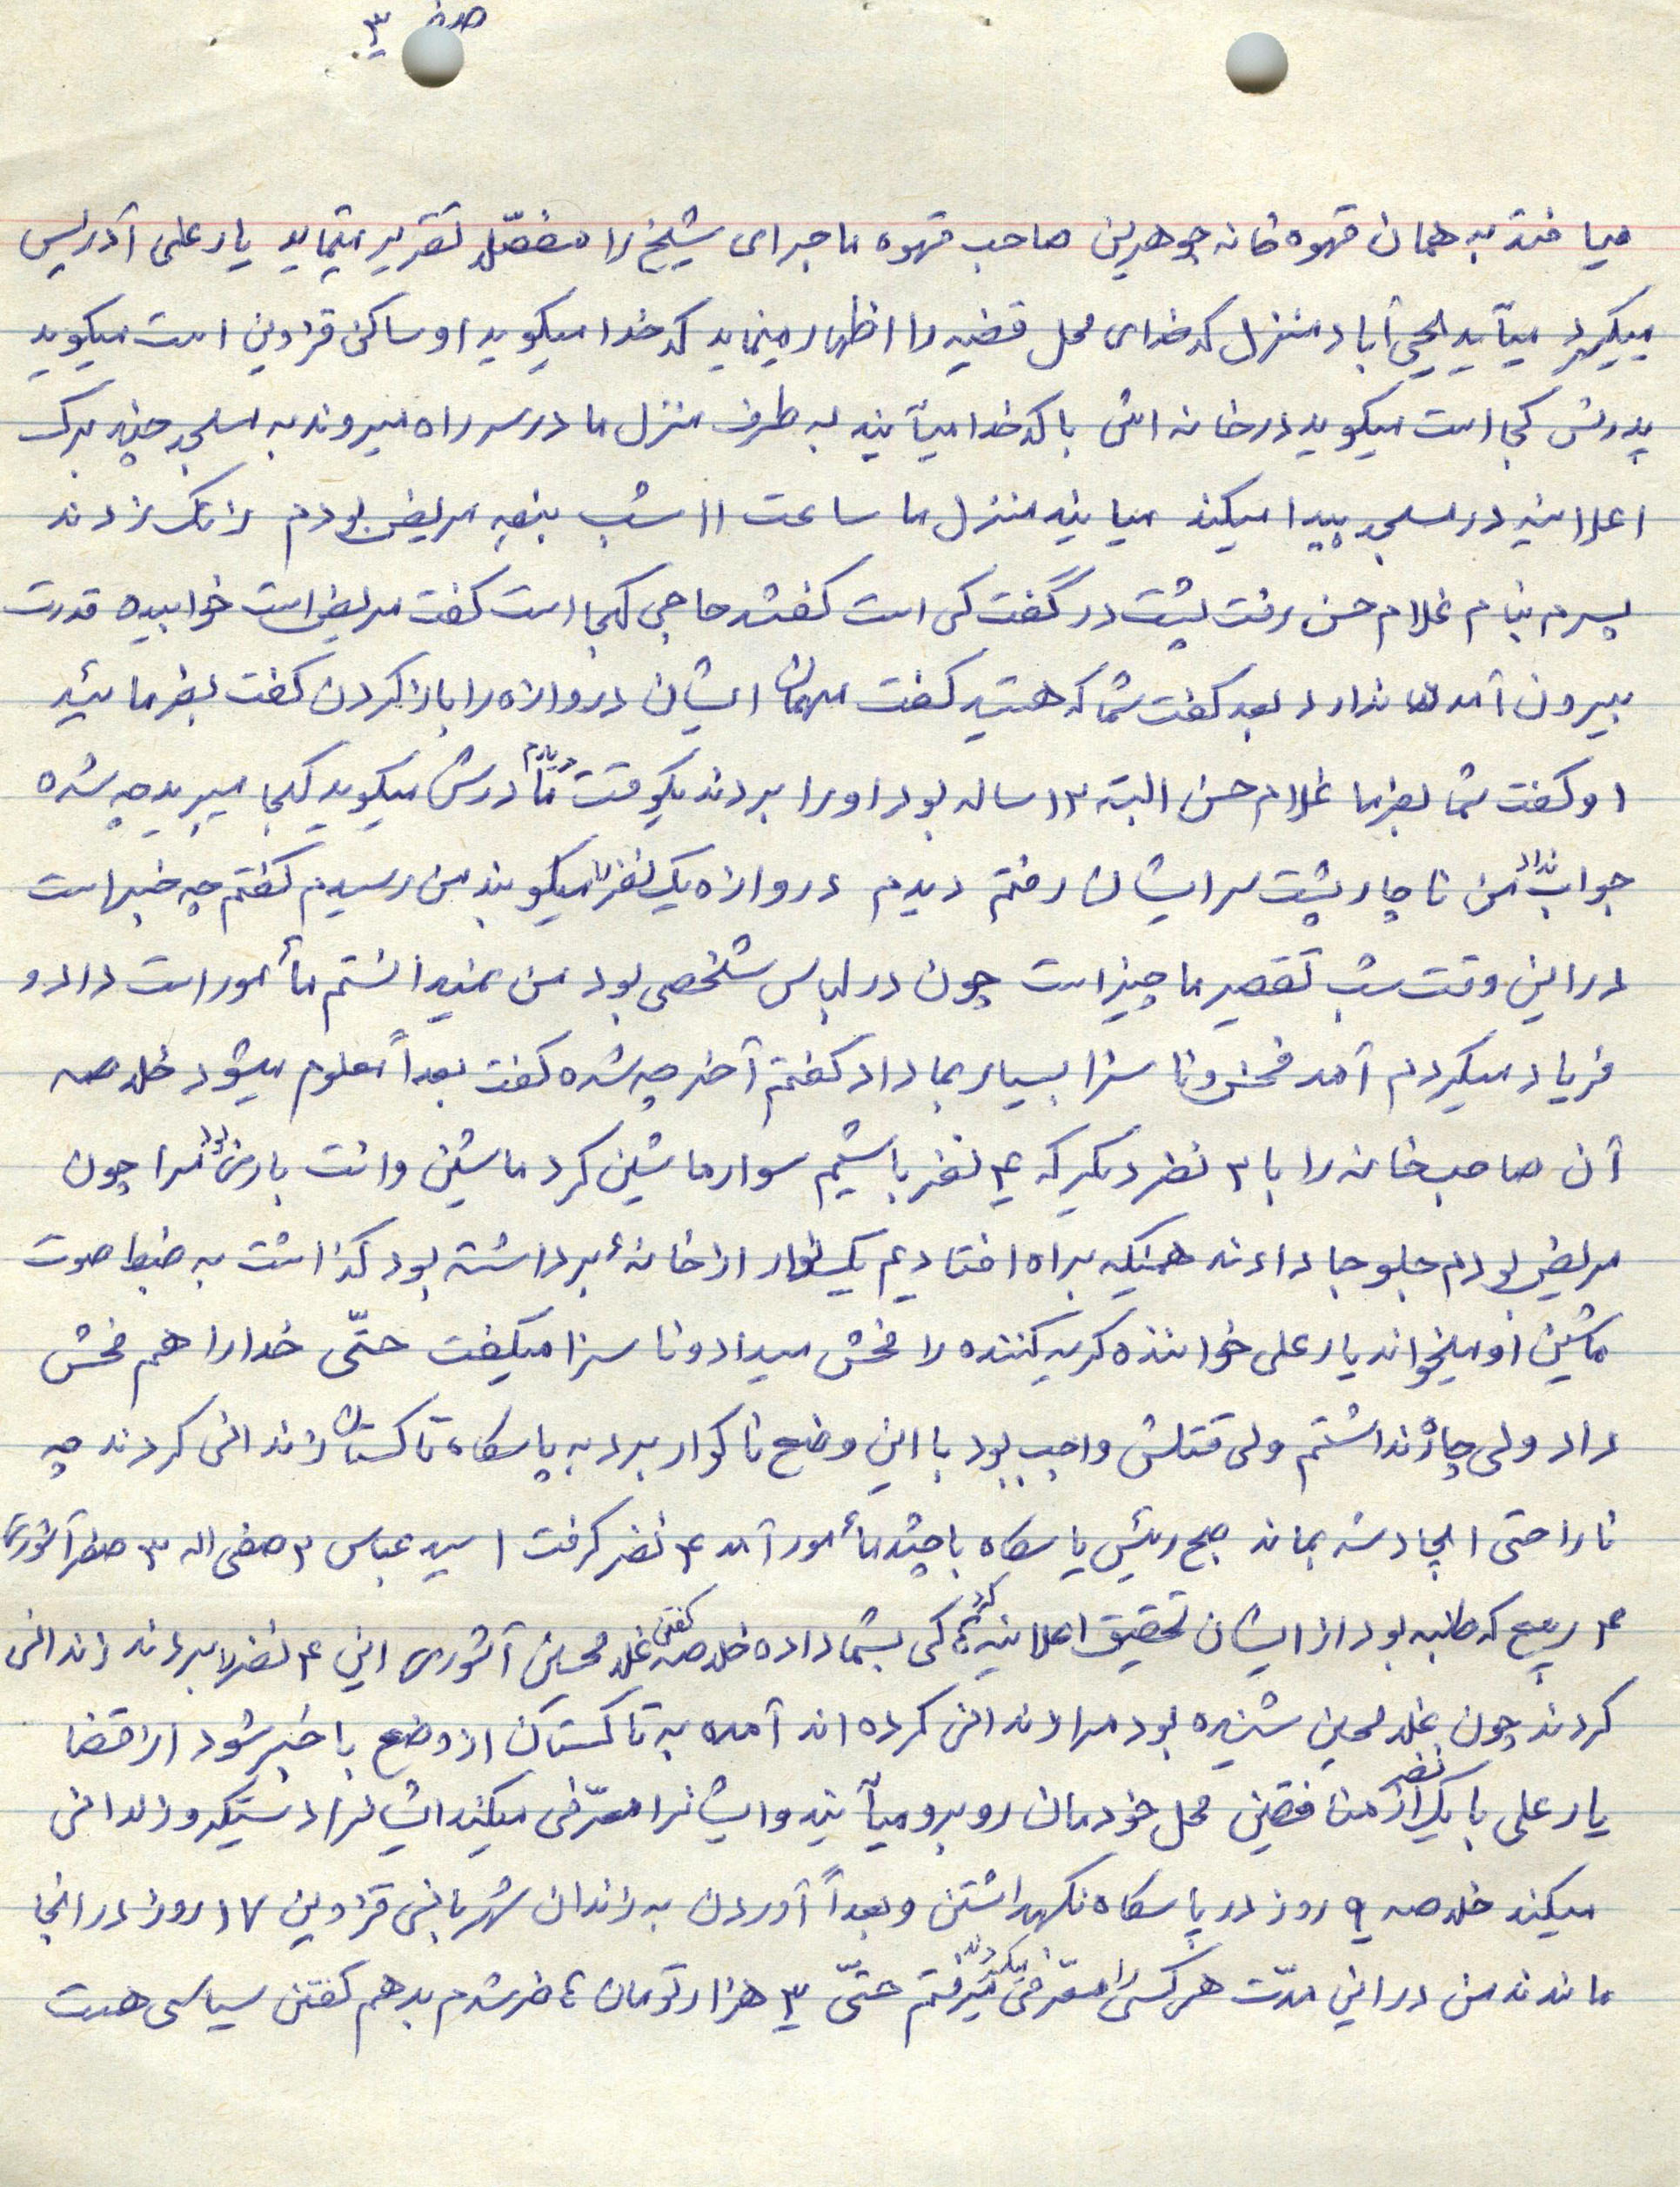 صفحه ۳
میافتد به همان قهوه خانه جوهرین صاحب قهوه ماجرای شیخ را مفصّل تقریر مینماید یارعلی آدرس
میگیرد میآید یحیی آباد منزل کدخدای محل قضیه را اظهار مینماید کدخدا میگوید او ساکن قزوین است میگوید
پدرش کجا است میگوید در خانه اش با کدخدا میآیند به طرف منزل ما در سر راه میروند به مسجد چند برگ
اعلامیه در مسجد پیدا میکند میایند منزل ما ساعت ۱۱ شب بنده مریض بودم زنگ زدند
پسرم بنام غلام حسن رفت پشت در گفت کی است گفتند حاجی کجا است گفت مریض است خوابیده قدرت
بیرون آمدن ندارد بعد گفت شما که هستید گفت مهمان ایشان دروازه را باز کردن گفت بفرمائید
او گفت شما بفرما غلام حسن البته ۱۳ ساله بود او را بردند یکوقت دیدم مادرش میگوید کجا میبرید چه شده
جواب نداد من ناچار پشت سر ایشان رفتم دیدم دروازه یک نفر را میکوبند من رسیدم گفتم چه خبر است
در این وقت شب تقصیر ما چیز است چون در لباس شخصی بود من نمیدانستم مأمور است داد و
فریاد میکردم آمد فحش و ناسزا بسیار بما داد گفتم آخر چه شده گفت بعداً معلوم میشود خلاصه
آن صاحب خانه را با ۳ نفر دیگر که ۴ نفر باشیم سوار ماشین کرد ماشین وانت بار من را چون
مریض بودم جلو جا دادند همینکه براه افتادیم یک نوار از خانه برداشته بود گذاشت به ضبط صوت
ماشین او میخواند یارعلی خواننده گریه کننده را فحش میداد و ناسزا میگفت حتّی خدا را هم فحش
داد ولی چاره نداشتم ولی قتلش واجب بود با این وضع ناگوار برد به پاسگاه تاکستان زندانی کردند چه
ناراحتی ایجاد شد بماند صبح رئیس پاسگاه با چند مأمور آمد ۴ نفر گرفت ۱ سید عباس ۲ صفی اله ۳ صفر آشوری
۴ ربیع که طلبه بود از ایشان تحقیق کرد اعلامیه کی بشما داده خلاصه گفتن غلامحسین آشوری این ۴ نفر را بردند زندانی
کردند چون غلامحسین شنیده بود مرا زندانی کرده اند آمده به تاکستان از وضع با خبر شود از قضا
یارعلی با یک نفر از منافقین محل خودمان روبرو میآیند و ایشانرا معرّفی میکند ایشانرا دستیگر و زندانی
میکند خلاصه ۹ روز در پاسگاه نگهداشتن و بعداً آوردن به زندان شهربانی قزوین ۱۷ روز در آنجا
ماندند من در این مدّت هر کسی را معرّفی میکردند میرفتم حتّی ۳ هزار تومان حاضر شدم بدهم گفتن سیاسی هست